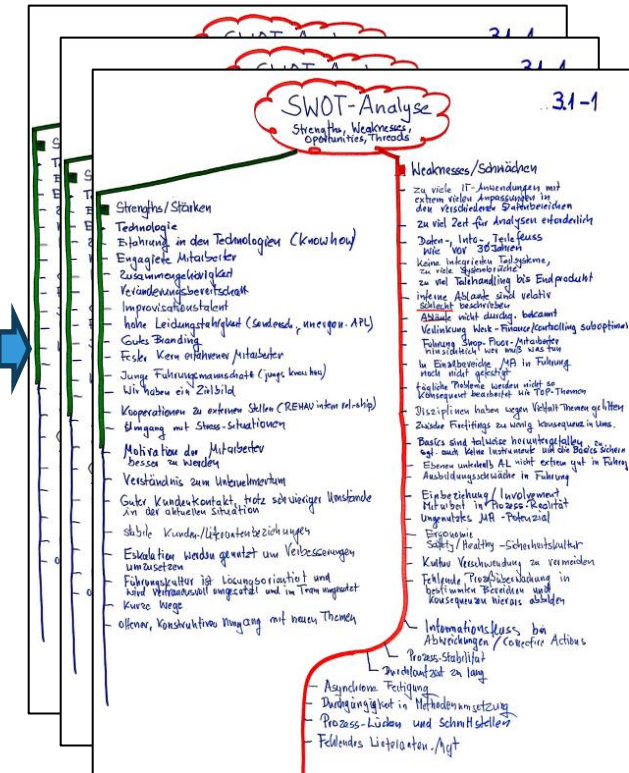 3.1-1
3.1-1
3.1-1
SWOT-Analyse
Strengths, Weaknesses,
Oportunities, Threads
Strengths/Stärken
Technologie
Erfahrung in den Technologien (Knowhow)
Engagierte Mitarbeiter
Zusammengehörigkeit
Veränderungsbereitschaft
Improvisationstalent
hohe Leidungsfähigkeit
Gutes Branding
Fester Kern erfahrener Mitarbeiter
Junge Führungsmannschaft (jungs know how)
Wir haben ein Zielbild
Kooperationen zu externen Stellen (REHAU intern rel-ship)
Umgang mit Stress-Situationen
Motivation der Mitarbeiter
besser zu werden
Verständnis zum Unternehmertum
Guter Kundenkontakt, trotz schwieriger Umstände
in der aktuellen Situation
stabile Kunden/Lieferantenbeziehungen
Eskalation werden genutzt um Verbesserungen
umzusetzen
Führungskultur ist Lösungsorientiert und
wird vertrauensvoll umgesetzt und im Team umgesetzt
Kurze Wege
offener, konstruktiver Umgang mit neuen Themen
Weaknesses/Schwächen
zu viele IT-Anwendungen mit
extrem vielen Anpassungen in
den verschiedenen Datenbereichen
zu viel Zeit für Analysen erforderlich
Daten-, Info-, Teilefluss
wie vor 30 Jahren
Keine integrierten Teilsysteme,
zu viele Systembrüche
zu viel Teilehandling bis Endprodukt
interne Abläufe sind relativ
schlecht beschrieben
Abläufe nicht durchg. bekannt
Verlinkung Werk-Finance/Kontrolling suboptimal
Führung Shop-Floor-Mitarbeiter
hinsichtlich wer muß was tun
In Einzelbereiche MA in Führung
noch nicht gefestigt
tägliche Probleme werden nicht so
Konsequent bearbeitet wie TOP-Themen
Disziplinen haben wegen Vielfalt Themen gelitten
zu wenig Konsequenz in Ums.
Basics sind teilweise heruntergefallen, zu
ggf. auch keine Instrumente um die Basics sichern
Ebenen unterhalb AL nicht extrem gut in Führung
Ausbildungsschwäche in Führung
Einbeziehung/Involvement
Mitarbeit in Prozess-Realität
ungenutztes MA-Potenzial
Ergonomie
Safety/Healthy-Sicherheitskultur
Kultur Verschwendung zu vermeiden
Fehlende Prozeßüberwachung in
bestimmten Bereichen und
Konsequenzen hieraus abbilden
Informationsfluss bei
Abweichungen/Corrective Actions
Prozess-Stabilität
Durchlaufzeit zu lang
Asynchrone Fertigung
Durchgängigkeit in Methodenumsetzung
Prozess-Lücken und Schnittstellen
Fehlendes Lieferanten-Mgt